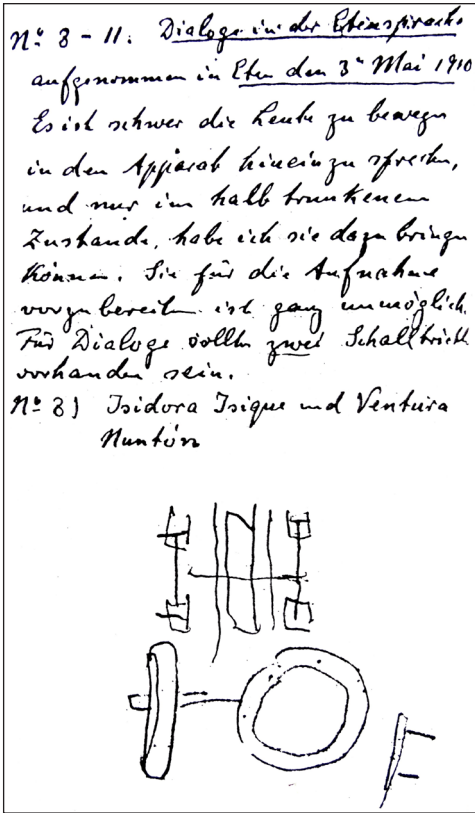 Nº 8 - 11. Dialoge in der Etensprache
aufgenommen in Eten den 3n Mai 1910
Es ist schwer die Leute zu bewegen
in den Apparat hineinzusprechen,
und nur im halb trunkenem
Zustande, habe ich sie dazu bringen
können. Sie für die Aufnahme
vorzubereiten ist ganz unmöglich.
Für Dialoge sollten zwei Schalltrichter
vorhanden sein.
Nº 8) Isidora Isique und Ventura
Nuntón